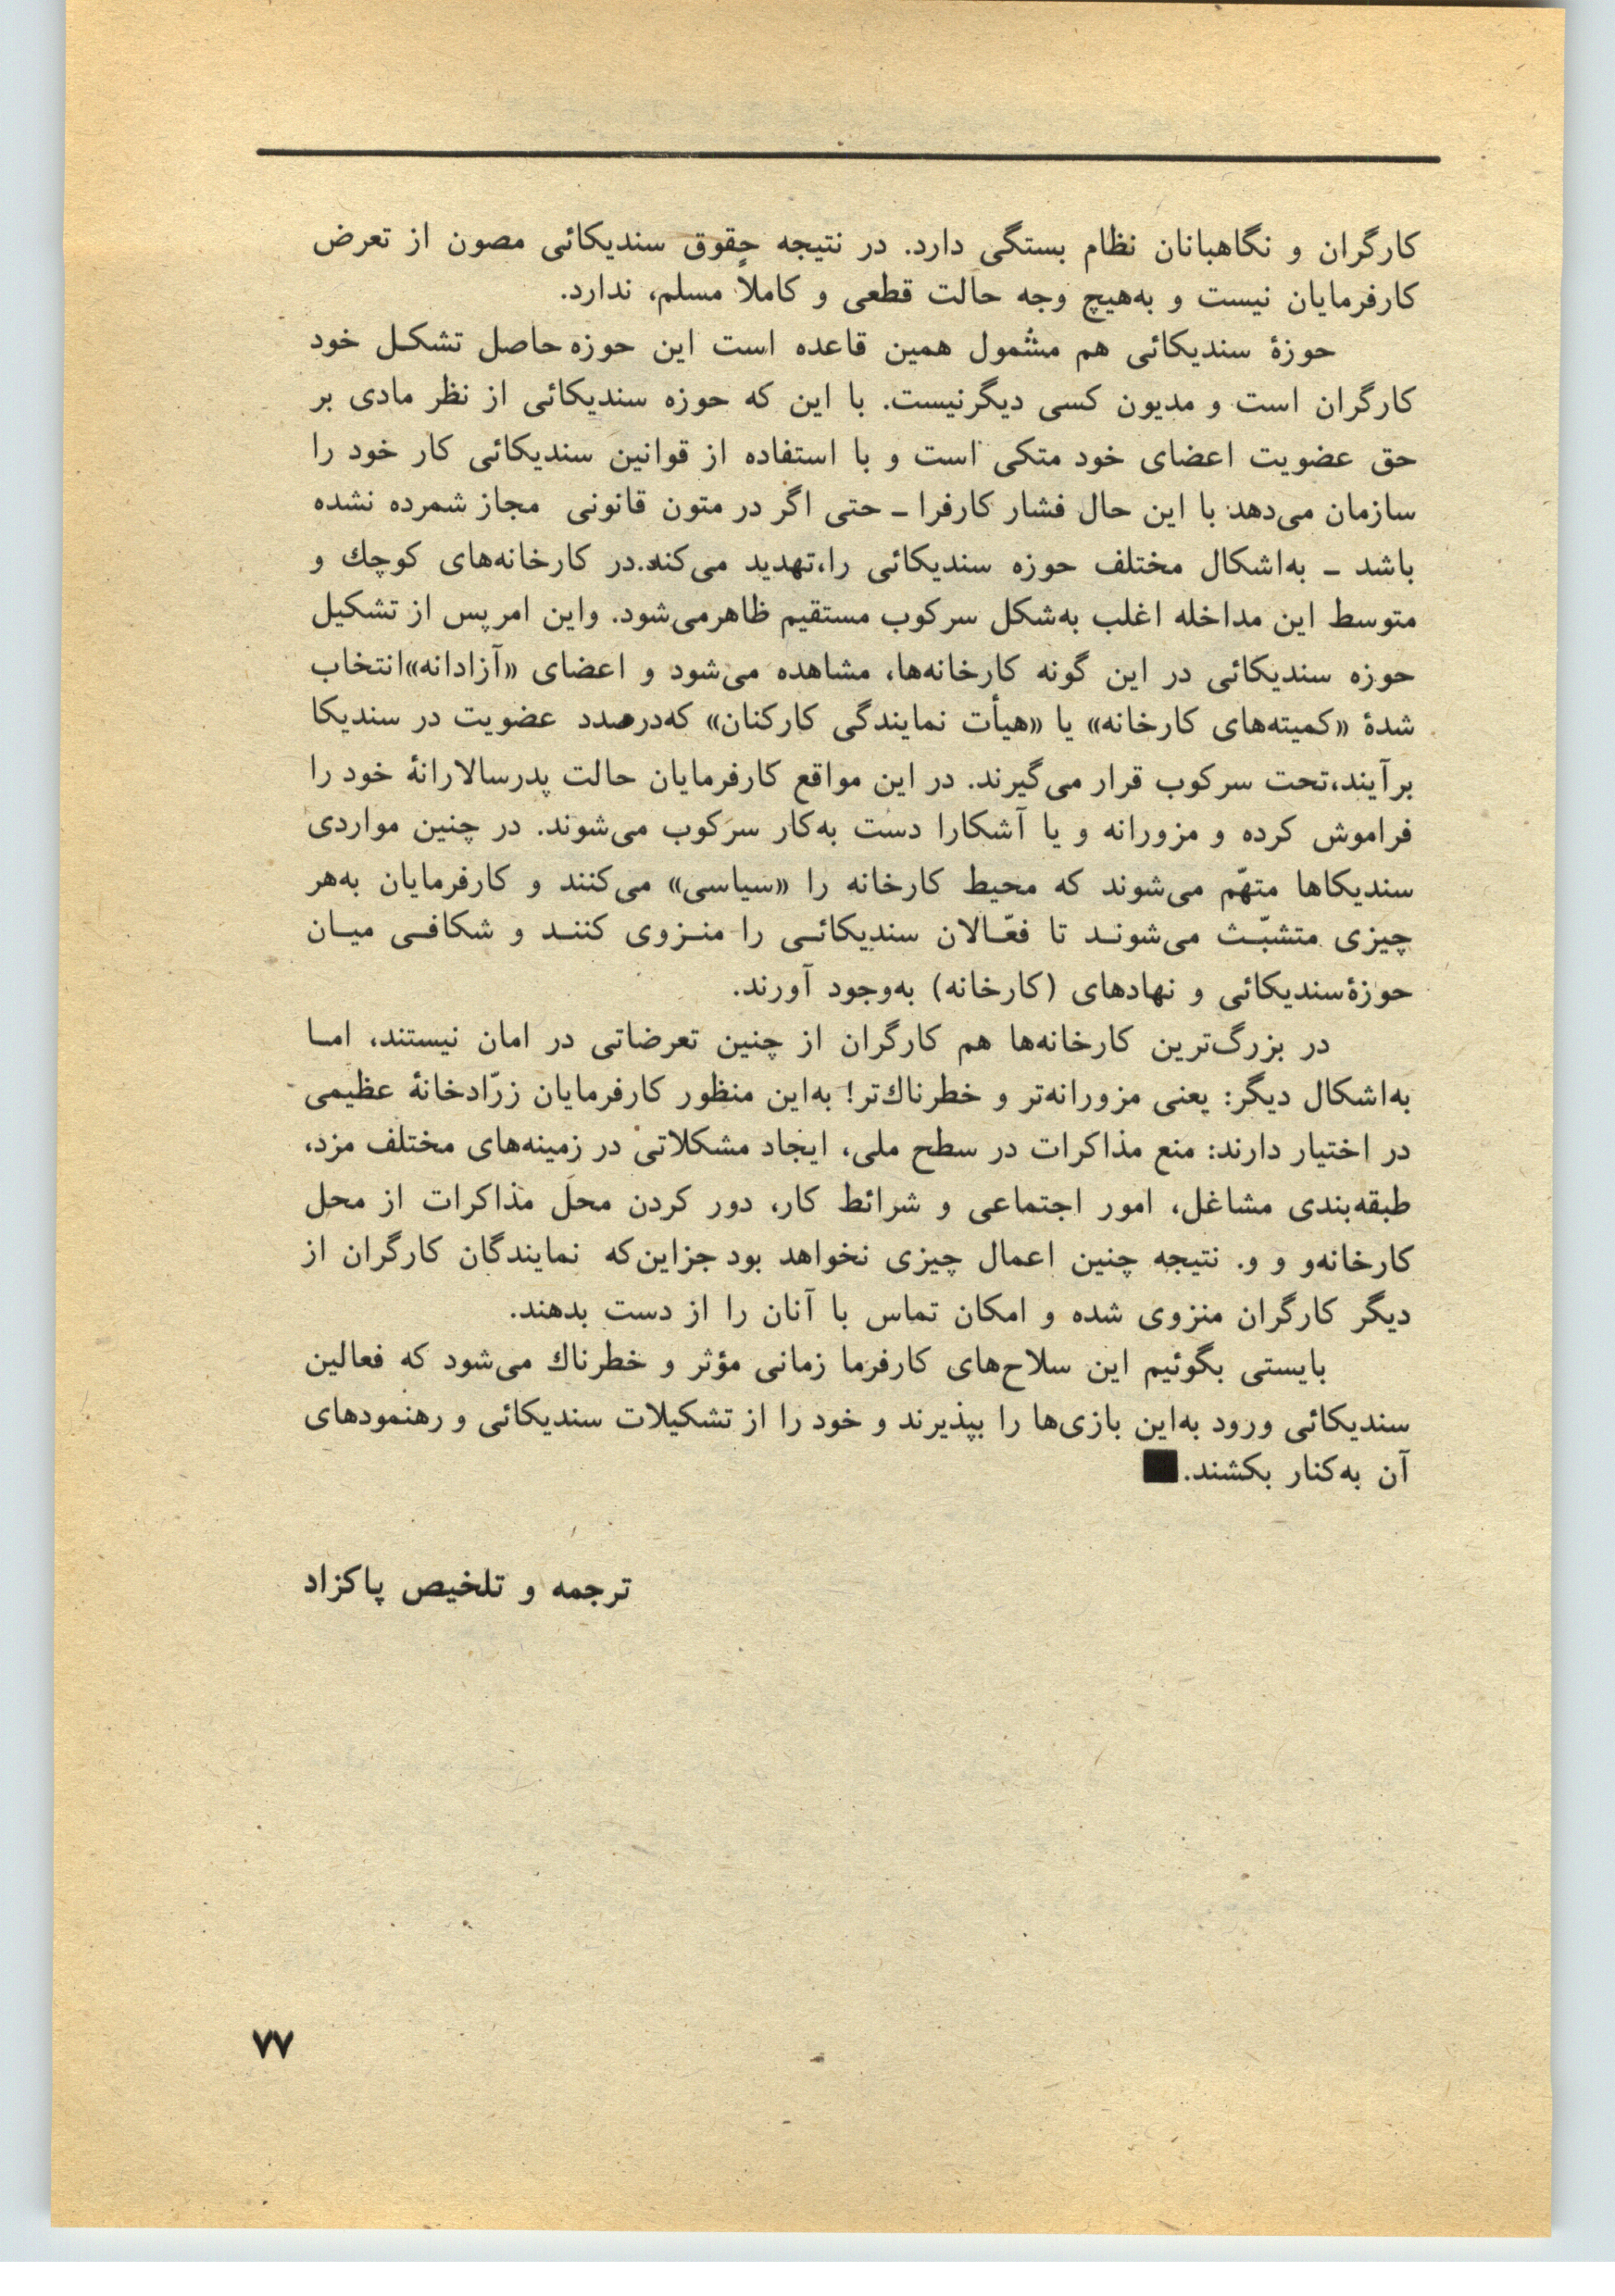 کارگران و نگاهبانان نظام بستگی دارد. در نتیجه حقوق سندیکائی مصون از تعرض
کارفرمایان نیست و به‌هیچ وجه حالت قطعی و کاملاً مسلم، ندارد.
حوزهٔ سندیکائی هم مشمول همین قاعده است این حوزه حاصل تشکل خود
کارگران است و مدیون کسی دیگرنیست. با این که حوزه سندیکائی از نظر مادی بر
حق عضویت اعضای خود متکی است و با استفاده از قوانین سندیکائی کار خود را
سازمان می‌دهد با این حال فشار کارفرا ـ حتی اگر در متون قانونی مجاز شمرده نشده
باشد ـ به‌اشکال مختلف حوزه سندیکائی را،تهدید می‌کند.در کارخانه‌های کوچك و
متوسط این مداخله اغلب به‌شکل سرکوب مستقیم ظاهرمی‌شود. واین امرپس از تشکیل
حوزه سندیکائی در این گونه کارخانه‌ها، مشاهده می‌شود و اعضای «آزادانه»انتخاب
شدهٔ «کمیته‌های کارخانه» یا «هیأت نمایندگی کارکنان» که‌درصدد عضویت در سندیکا
برآیند،تحت سرکوب قرار می‌گیرند. در این مواقع کارفرمایان حالت پدرسالارانهٔ خود را
فراموش کرده و مزورانه و یا آشکارا دست به‌کار سرکوب می‌شوند. در چنین مواردی
سندیکاها متهّم می‌شوند که محیط کارخانه را «سیاسی» می‌کنند و کارفرمایان به‌هر
چیزی متشبّث می‌شوند تا فعّالان سندیکائی را منزوی کنند و شکافی میان
حوزهٔسندیکائی و نهادهای (کارخانه) به‌وجود آورند.
در بزرگ‌ترین کارخانه‌ها هم کارگران از چنین تعرضاتی در امان نیستند، اما
به‌اشکال دیگر: یعنی مزورانه‌تر و خطرناك‌تر! به‌این منظور کارفرمایان زرّادخانهٔ عظیمی
در اختیار دارند: منع مذاکرات در سطح ملی، ایجاد مشکلاتی در زمینه‌های مختلف مزد،
طبقه‌بندی مشاغل، امور اجتماعی و شرائط کار، دور کردن محل مذاکرات از محل
کارخانه‌و و و. نتیجه چنین اعمال چیزی نخواهد بود جزاین‌که نمایندگان کارگران از
دیگر کارگران منزوی شده و امکان تماس با آنان را از دست بدهند.
بایستی بگوئیم این سلاح‌های کارفرما زمانی مؤثر و خطرناك می‌شود که فعالین
سندیکائی ورود به‌این بازی‌ها را بپذیرند و خود را از تشکیلات سندیکائی و رهنمودهای
آن به‌کنار بکشند.■
ترجمه و تلخیص پاکزاد
۷۷